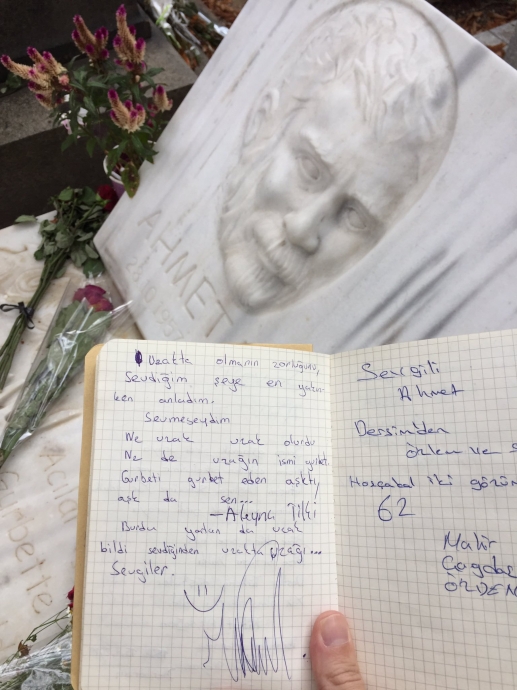 AHMET
Uzakta olmanın zorluğunu,
Sevdiğim şeye en yakın-
ken anladım.
Sevmeseydim
Ne uzak uzak olurdu
Ne de uzağın ismi gurbet.
Gurbeti gurbet eden aşktı,
aşk da sen...
Burda yatan da uzak
bildi sevdiğinden uzakta uzağı...
Sevgiler.
Sevgili
Ahmet
Dersim'den
özlem ve
Hoşçakal iki gözüm
62
Mahir
Çağdaş
ÖZDEN